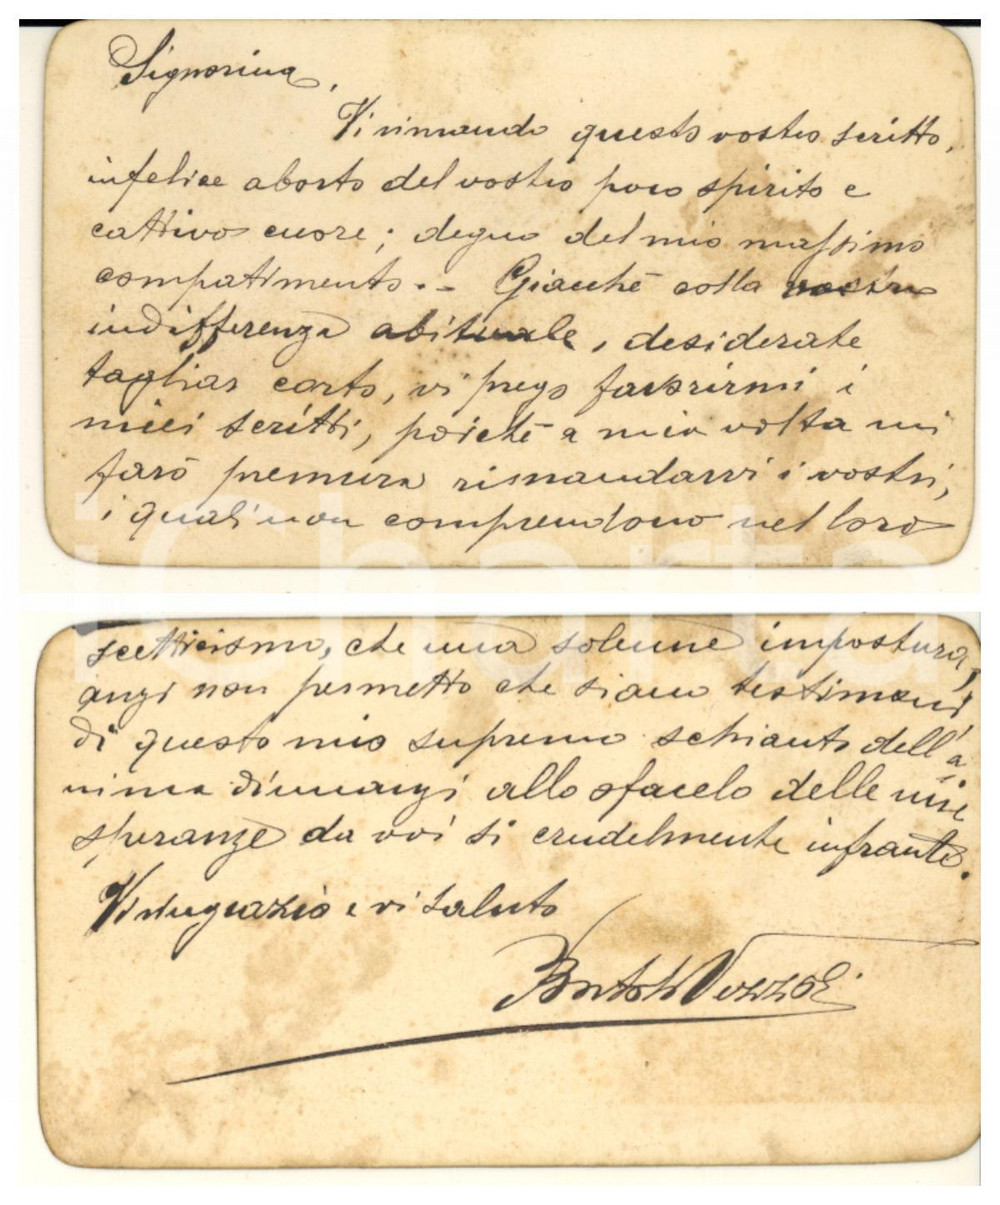 Signorina,
Vi rimando questo vostro scritto,
infelice aborto del vostro poco spirito e
cattivo cuore; degno del mio massimo
compatimento. - Giacché colla vostra
indifferenza abituale, desiderate
tagliar corto, vi prego favorirmi i
miei scritti, poiché a mia volta mi
farò premura rimandarvi i vostri,
i quali non comprendono nel loro
scetticismo, che una solenne impostura,
anzi non permetto che siano testimoni
di questo mio supremo schianto dell'a-
nima dinnanzi allo sfacelo delle mie
speranze da voi sì crudelmente infrante.
Vi ringrazio e vi saluto
iCharta